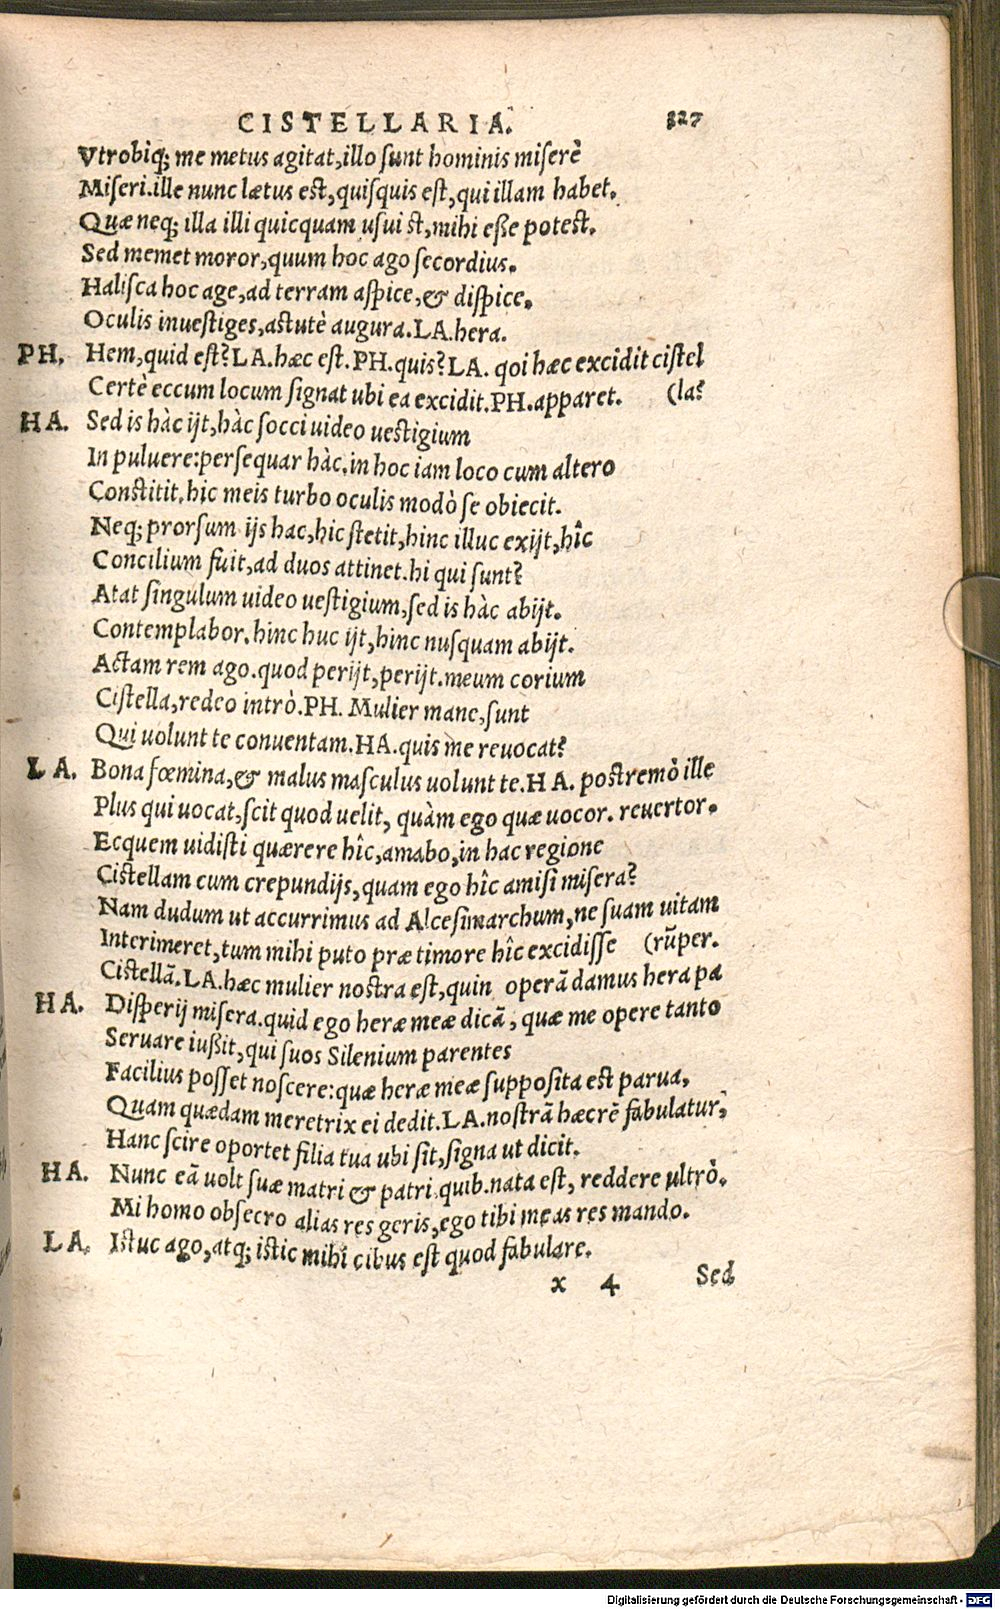 CISTELLARIA. 327
Vtrobiq; me metus agitat, illo sunt hominis miserè
Miseri. ille nunc lætus est, quisquis est, qui illam habet.
Quæ neq; illa illi quicquam usui st, mihi eße potest.
Sed memet moror, quum hoc ago secordius.
Halisca hoc age, ad terram aspice, & dispice.
Oculis inuestiges, astutè augura. LA. hera.
PH. Hem, quid est? LA. hæc est. PH. quis? LA. qoi hæc excidit cistel
Certè eccum locum signat ubi ea excidit. PH. apparet. (la?
HA. Sed is hàc ijt, hàc socci uideo uestigium
In puluere: persequar hàc. in hoc iam loco cum altero
Constitit. hic meis turbo oculis modò se obiecit.
Neq; prorsum ijs hac, hic stetit, hinc illuc exijt, hîc
Concilium fuit, ad duos attinet. hi qui sunt?
Atat singulum uideo uestigium, sed is hàc abijt.
Contemplabor. hinc huc ijt, hinc nusquam abijt.
Actam rem ago. quod perijt, perijt. meum corium
Cistella, redeo intrò. PH. Mulier mane, sunt
Qui uolunt te conuentam. HA. quis me reuocat?
LA. Bona fœmina, & malus masculus uolunt te. HA. postremò ille
Plus qui uocat, scit quod uelit, quàm ego quæ uocor. reuertor.
Ecquem uidisti quærere hîc, amabo, in hac regione
Cistellam cum crepundijs, quam ego hîc amisi misera?
Nam dudum ut accurrimus ad Alcesimarchum, ne suam uitam
Interimeret, tum mihi puto præ timore hîc excidisse (rũper.
Cistellã. LA. hæc mulier nostra est, quin operã damus hera pa
HA. Disperij misera. quid ego heræ meæ dicã, quæ me opere tanto
Seruare iußit, qui suos Silenium parentes
Facilius posset noscere: quæ heræ meæ supposita est parua,
Quam quædam meretrix ei dedit. LA. nostrã hæc rẽ fabulatur,
Hanc scire oportet filia tua ubi sit, signa ut dicit.
HA. Nunc eã uolt suæ matri & patri quib. nata est, reddere ultrò.
Mi homo obsecro alias res geris, ego tibi meas res mando.
LA. Istuc ago, atq; istic mihi cibus est quod fabulare.
x 4 Sed
Digitalisierung gefördert durch die Deutsche Forschungsgemeinschaft - DFG